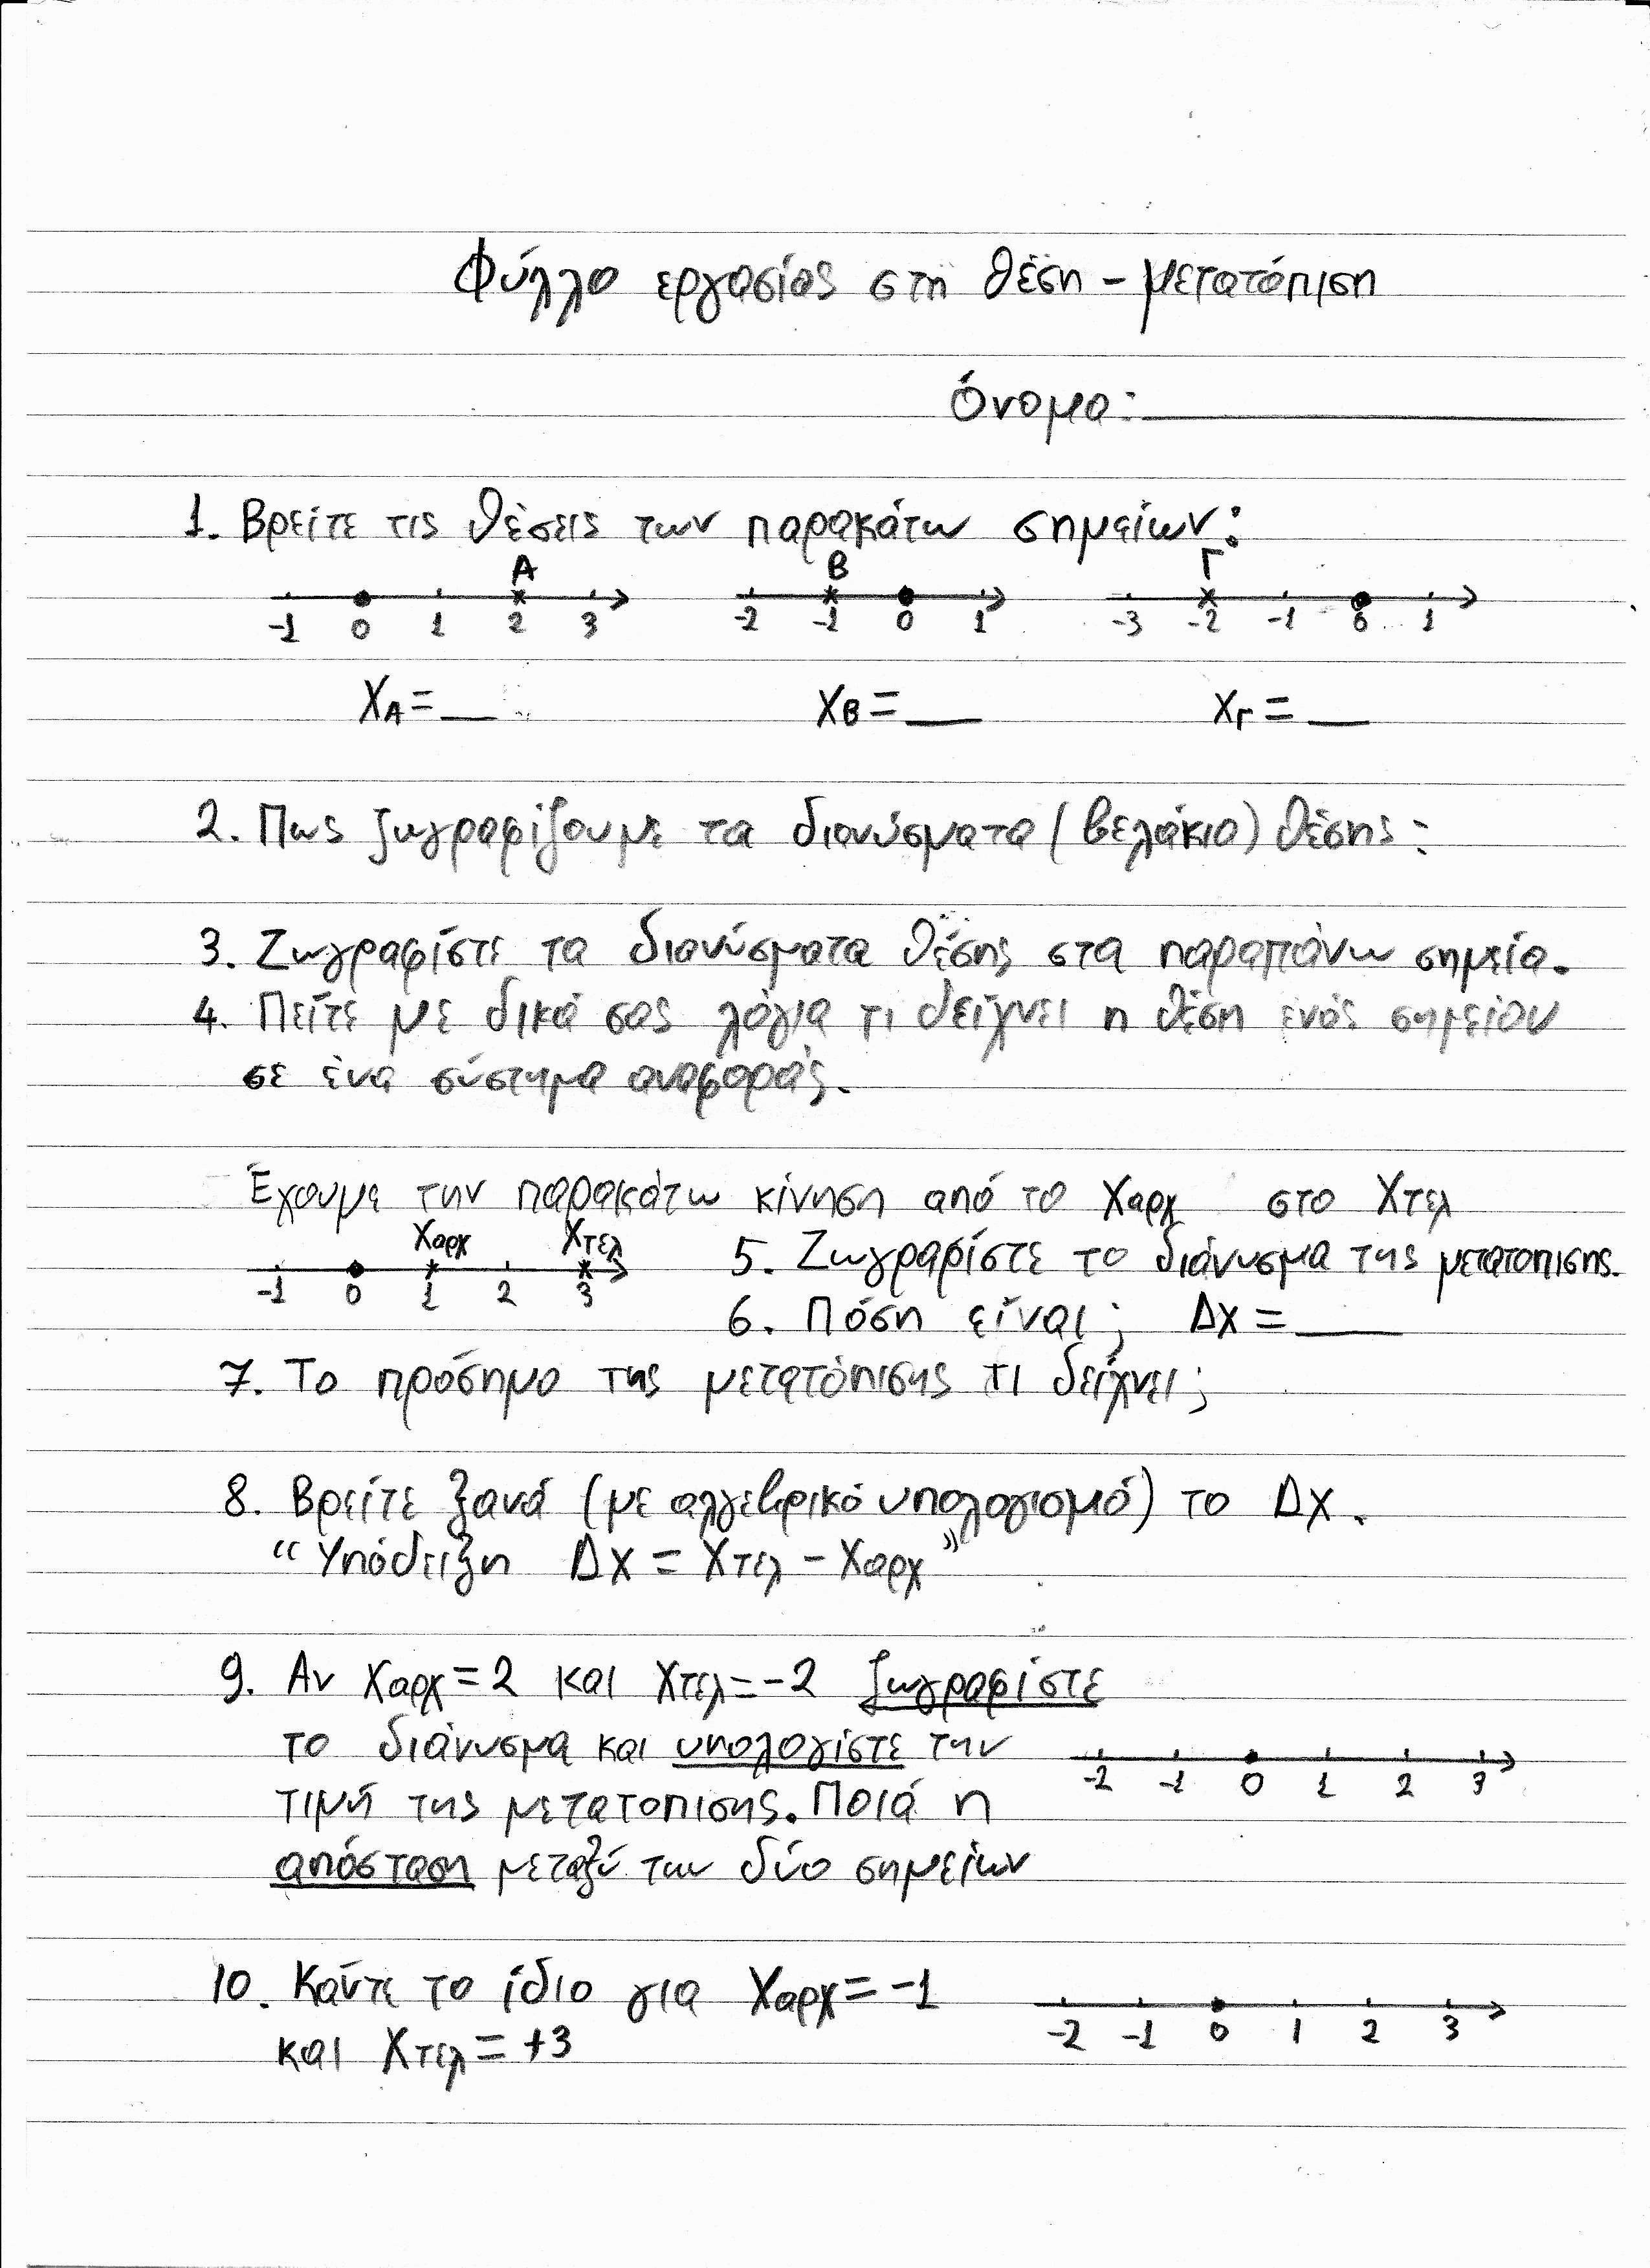 Φύλλο εργασίας στη θέση - μετατόπιση
Όνομα:
1. Βρείτε τις θέσεις των παρακάτω σημείων:
A B Γ
-1 0 1 2 3 -2 -1 0 1 -3 -2 -1 0 1
XA = __ XB = __ XΓ = __
2. Πως ζωγραφίζουμε τα διανύσματα (βελάκια) θέσης:
3. Ζωγραφίστε τα διανύσματα θέσης στα παραπάνω σημεία.
4. Πείτε με δικά σας λόγια τι δείχνει η θέση ενός σημείου
σε ένα σύστημα αναφοράς.
Έχουμε την παρακάτω κίνηση από το Χαρχ στο Χτελ
Χαρχ Χτελ
-1 0 1 2 3
5. Ζωγραφίστε το διάνυσμα της μετατοπισης.
6. Πόση είναι; Δx = __
7. Το πρόσημο της μετατόπισης τι δείχνει;
8. Βρείτε ξανά (με αλγεβρικό υπολογισμό) το Δχ.
“Υπόδειξη Δχ = Χτελ - Χαρχ”
9. Αν Χαρχ = 2 και Χτελ = -2 ζωγραφίστε
το διάνυσμα και υπολογίστε την
τιμή της μετατοπισης. Ποιά η
απόσταση μεταξύ των δύο σημείων
-2 -1 0 1 2 3
10. Κάντε το ίδιο για Χαρχ = -1
και Χτελ = +3
-2 -1 0 1 2 3